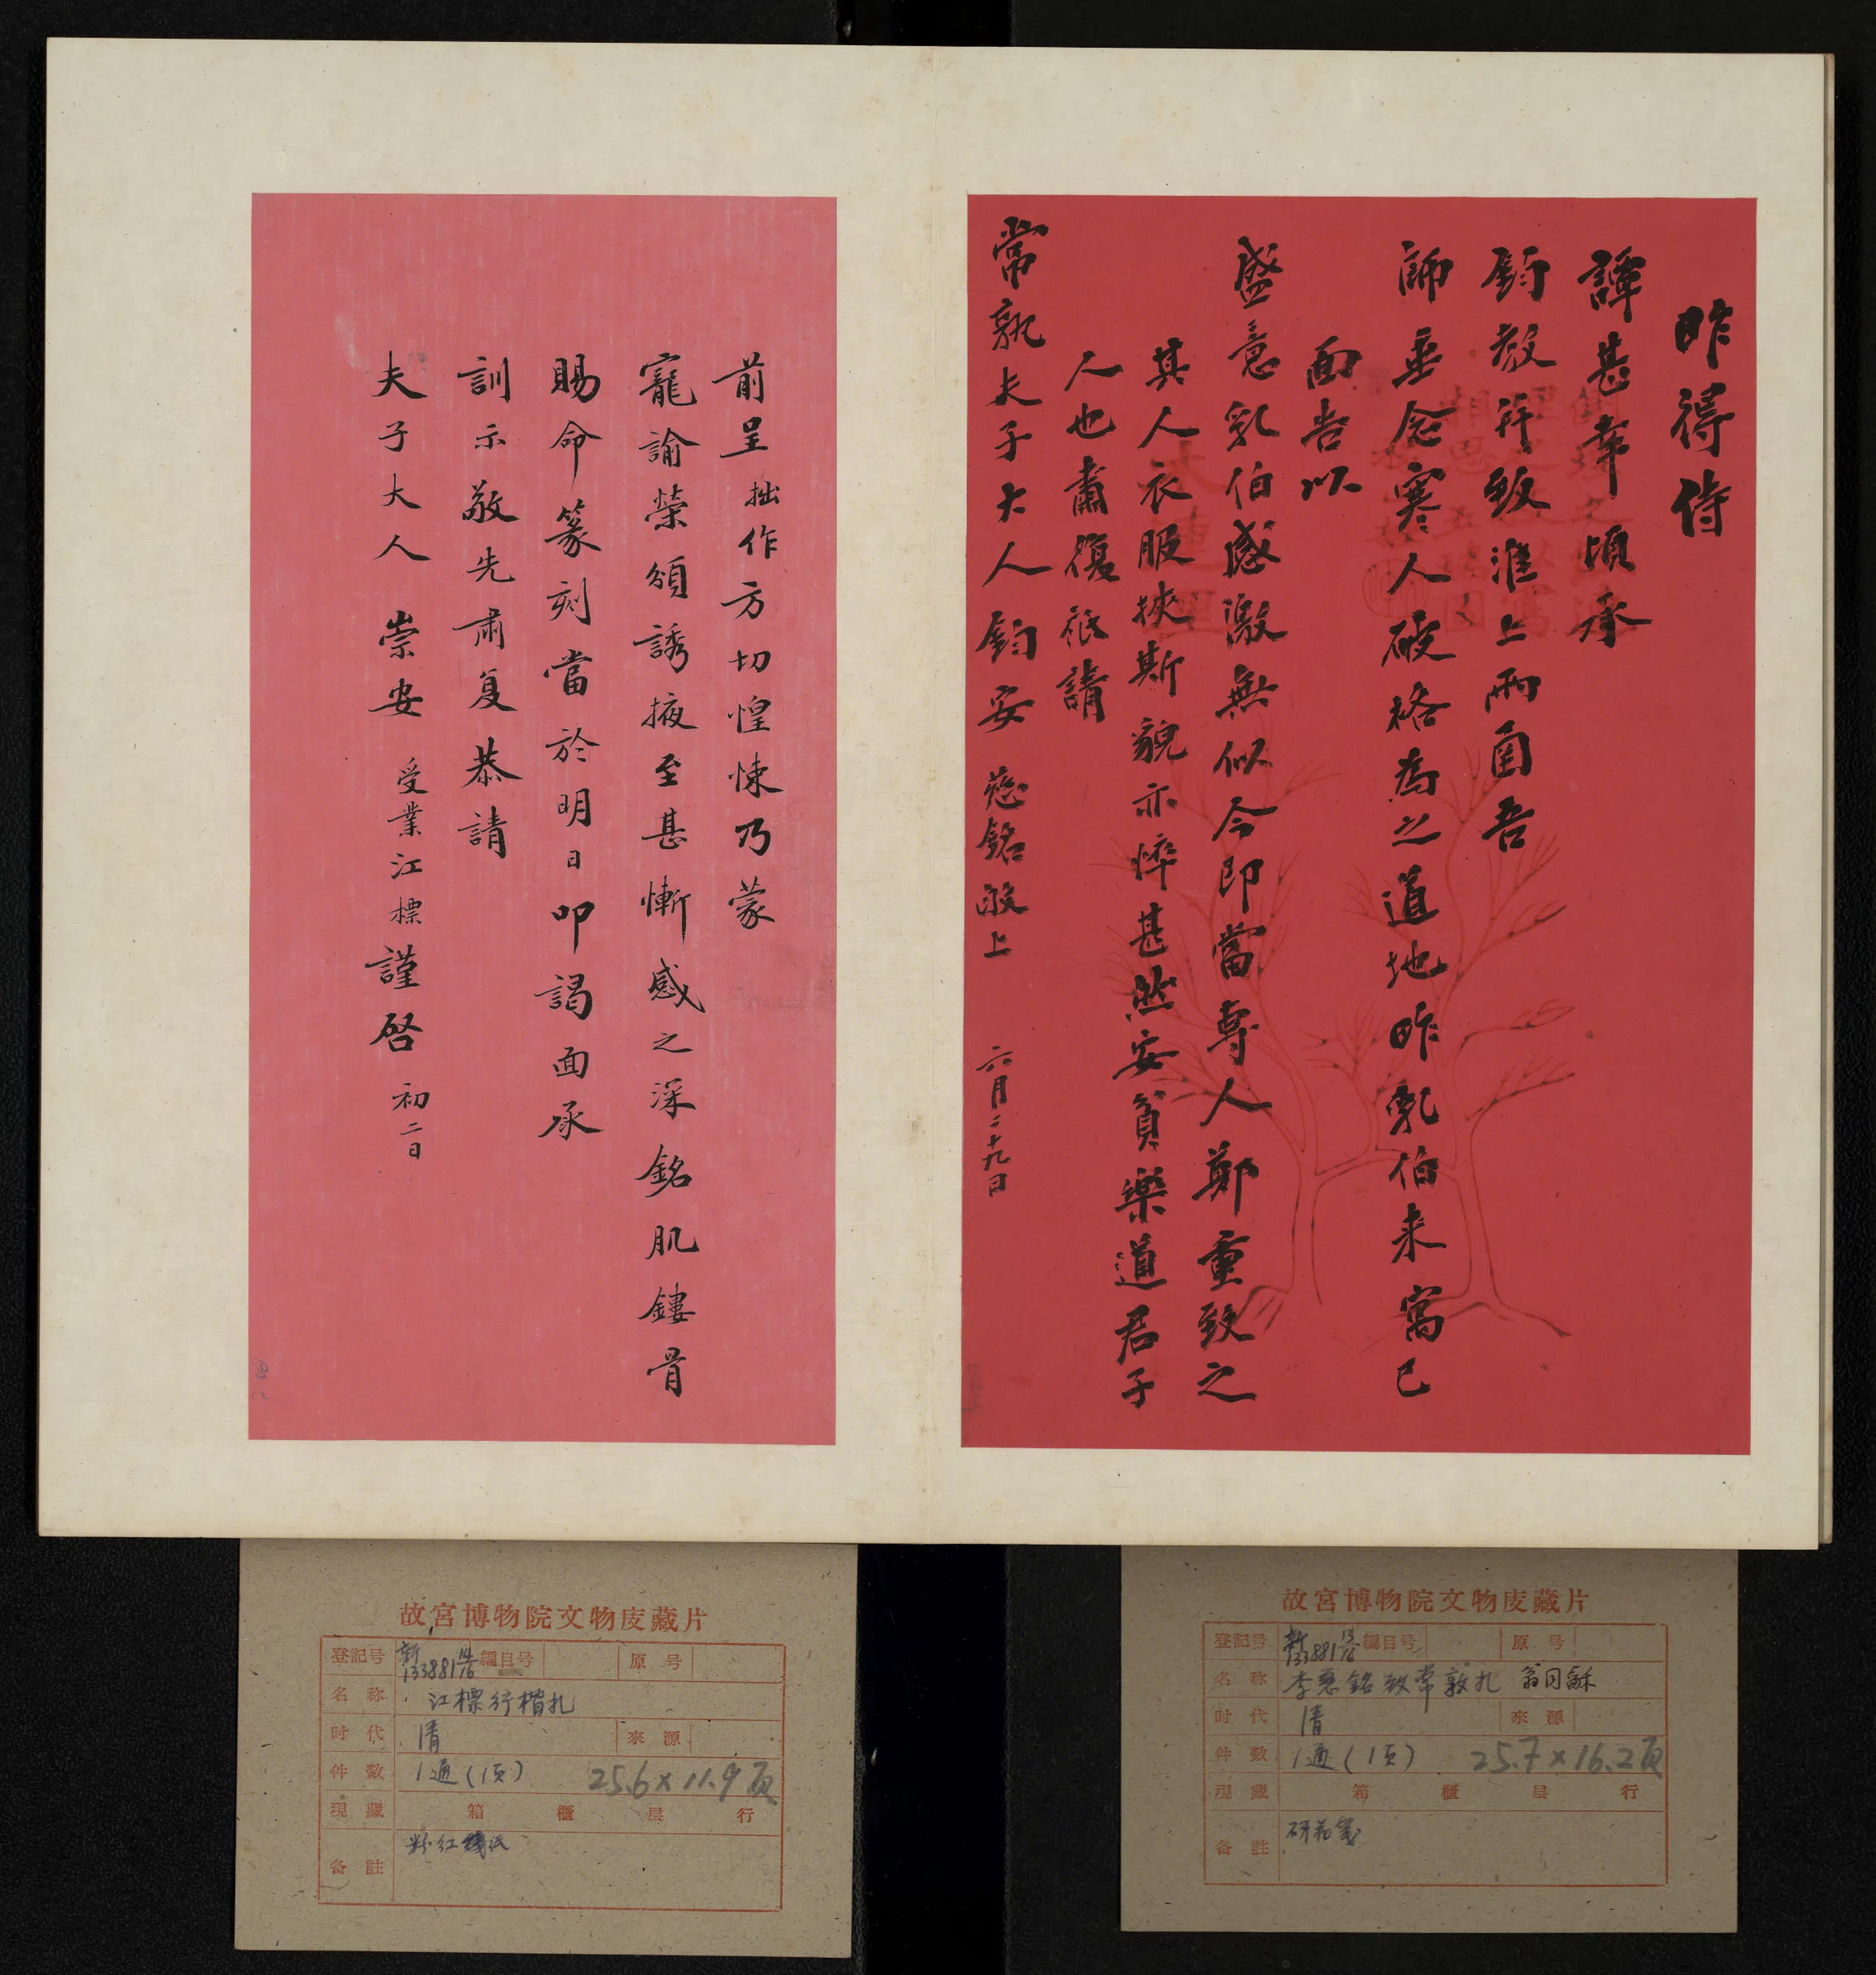 昨得侍
譚甚幸頃承
鈞教幷致淮上兩函吾
師垂念寒人破格為之道地昨乳伯来寓已
面告以
盛意乳伯感激無似今即當専人鄭重致之
其人衣服挾斯貌亦悴甚然安貧樂道君子
人也肅復祇請
常熟夫子大人鈞安 慈銘敬上 六月二十九日
前呈拙作方切惶悚乃蒙
寵諭榮頒誘掖至甚慚感之深銘肌鏤骨
賜命篆刻當於明日叩謁面承
訓示敬先肅复恭請
夫子大人 崇安 受業江標謹啓 初二日
故宮博物院文物庋藏片
登記号 新133881 13/16 編目号 原号
名称 李慈銘致常敦札 翁同龢
时代 清 來源
件数 1通(1页) 25.7×16.2頁
現藏 箱 櫃 层 行
备註 研花笺
故宮博物院文物庋藏片
登記号 新133881 14/16 編目号 原号
名称 江標行楷札
时代 清 來源
件数 1通(1页) 25.6×11.9頁
現藏 箱 櫃 层 行
备註 粉红笺纸